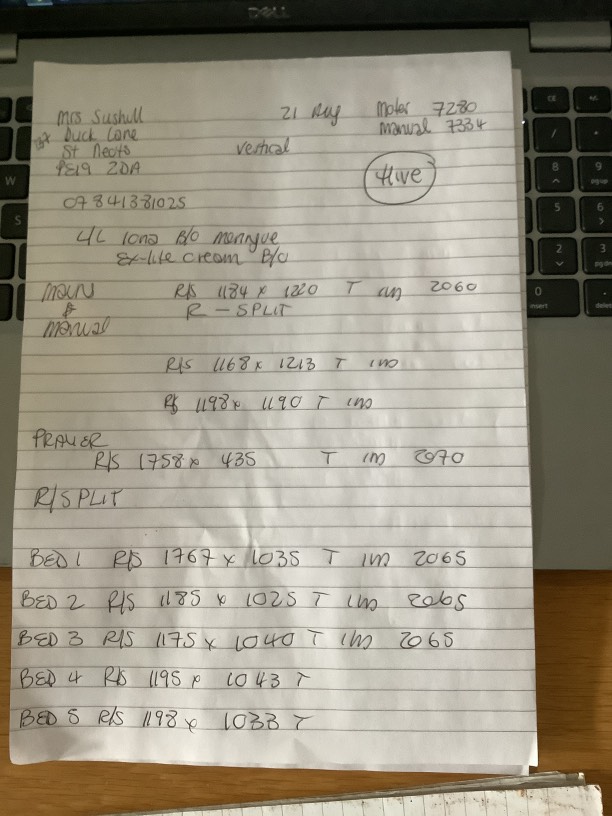 DELL
Mrs Sushull 21 Aug Moter 7280
Duck Lane Manual 7334
St Neots Vertical
PE19 2DA Hive
07841381025
L/L long B/O meringue
Ex-lite cream B/O
MAIN R/S 1184 x 1220 T 2060
& R - SPLIT
Manual
R/S 1168 x 1213 T
R/S 1198 x 1190 T
R/S 1758 x 435 T 2070
R/SPLIT
BED 1 R/S 1767 x 1035 T 1m 2065
BED 2 R/S 1185 x 1025 T 1m 2065
BED 3 R/S 1175 x 1040 T 1m 2065
BED 4 R/S 1195 x 1043 T
BED 5 R/S 1198 x 1033 T